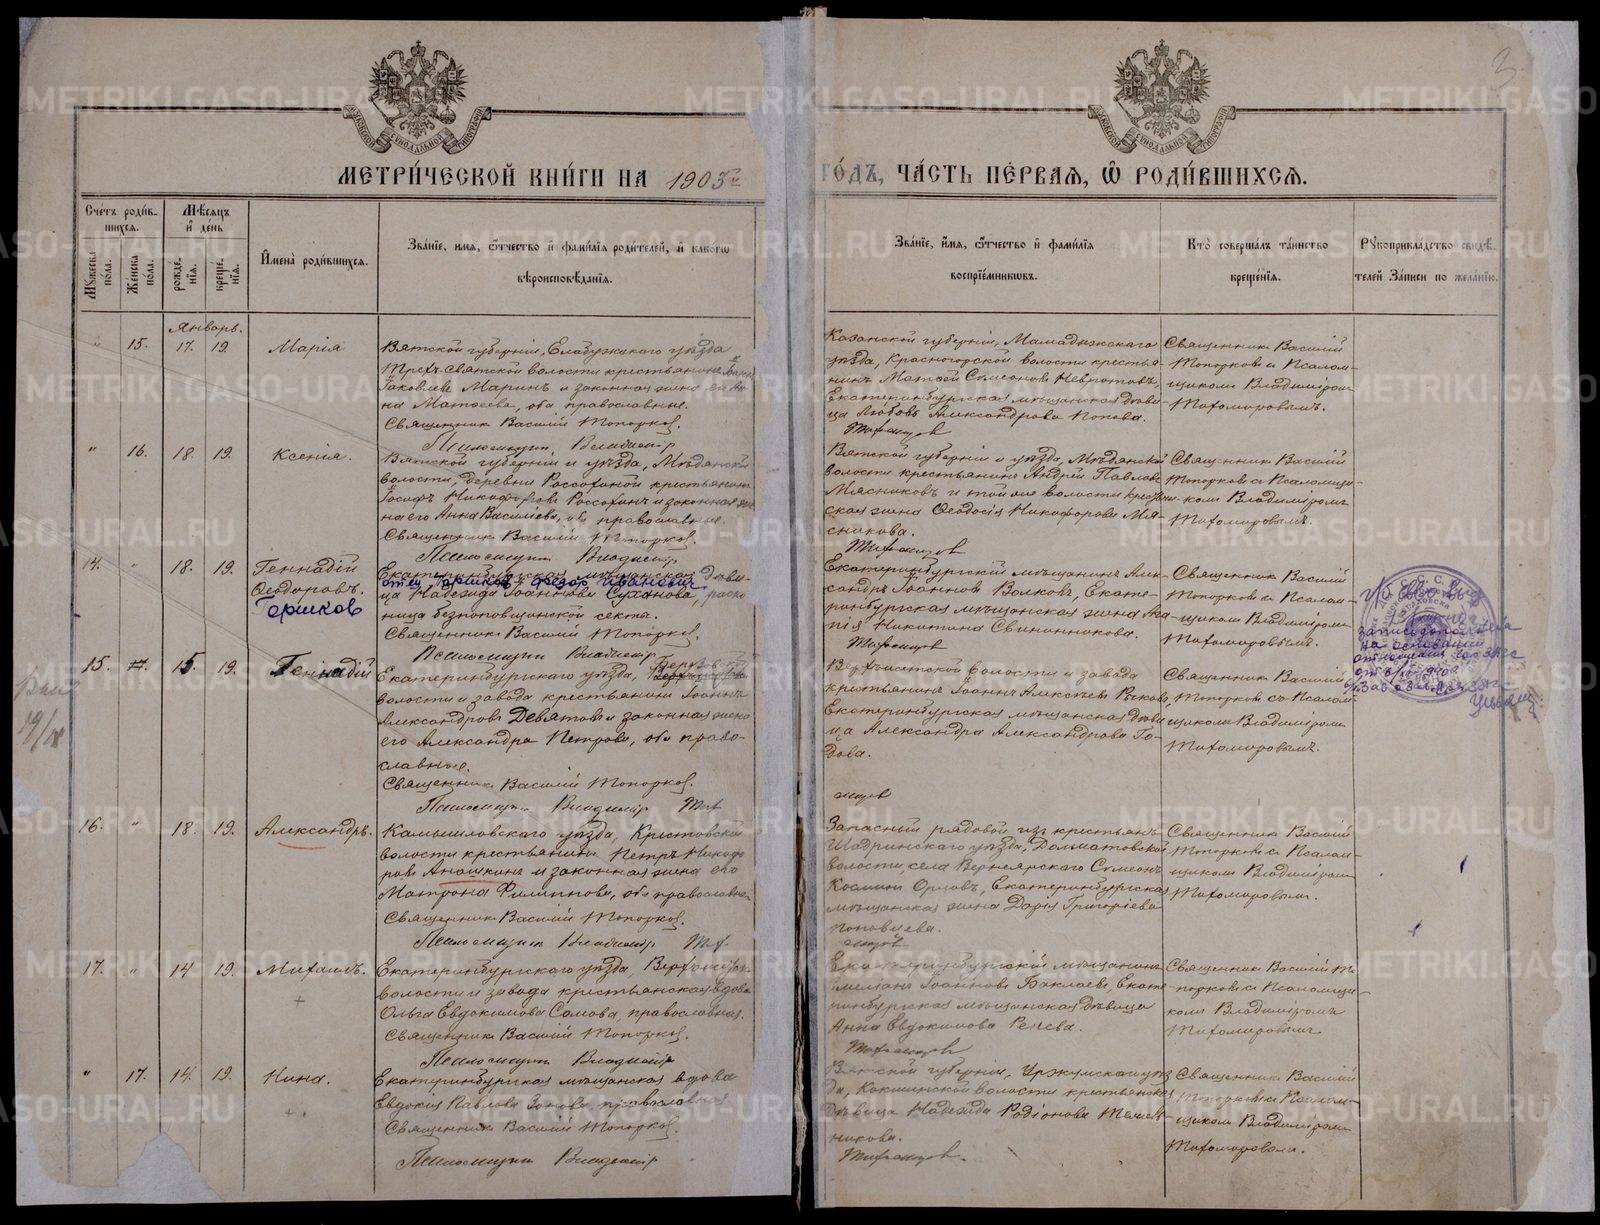 3
МЕТРИ́ЧЕСКОЙ КНИ́ГИ НА 1905й
ГО́ДЪ, ЧА́СТЬ ПЕ́РВАЯ, Ѡ РОДИ́ВШИХСЯ.
Сче́тъ роди́в-
шихся.
Мѣ́сяцъ
и де́нь
Му́жеска по́ла.
Же́нска по́ла.
рожде́нія.
креще́нія.
Имена̀ роди́вшихся.
Зва́ніе, имя, о́тчество и фами́лія роди́телей, и како́гѡ
вѣроисповѣ́данія.
Зва́ніе, и́мя, о́тчество и фами́лія
воспріе́мниковъ.
Кто̀ соверша́лъ та́инство
креще́нія.
Рукоприкла́дство свидѣ́-
телей За́писи по жела́нію.
Январь.
" 15. 17. 19. Марія
Вятской губерніи, Елабужскаго уѣзда
Трехъ-Святской волости крестьянинъ
Іаковлевъ Маринъ и законная жена его Ан-
на Матвеева, оба православные.
Священникъ Василій Топорковъ.
Псаломщикъ Владиміръ
Казанской губерніи, Мамадыжскаго
уѣзда, Красногорской волости крестья-
нинъ Матвей Симеоновъ
Екатеринбургская мѣщанская дѣви-
ца Любовь Александрова Попова.
Тихомировъ
Священникъ Василій
Топорковъ съ Псалом-
щикомъ Владиміромъ
Тихомировымъ.
" 16. 18. 19. Ксенія.
Вятской губерніи и уѣзда,
волости, деревни Россохиной крестьянинъ
Іосифъ Никифоровъ Россохинъ и законная же-
на его Анна Васильева, оба православные.
Священникъ Василій Топорковъ.
Псаломщикъ Владиміръ
Вятской губерніи и уѣзда,
волости крестьянинъ Андрей Павловъ
Мясниковъ и той же волости крестьян-
ская жена Ѳеодосія Никифорова Мя-
сникова.
Тихомировъ
Священникъ Василій
Топорковъ съ Псаломщи-
комъ Владиміромъ
Тихомировымъ.
14. " 18. 19. Геннадій
Ѳеодоровъ.
Горшков
Екатеринбургская мѣщанская дѣви-
отец Горшков Федор Иванович
ца Надежда Іоаннова Суханова, раско-
льница безпоповщинской секты.
Священникъ Василій Топорковъ.
Псаломщикъ Владиміръ
Екатеринбургскій мѣщанинъ Алек-
сандръ Іоанновъ Волковъ, Екате-
ринбургская мѣщанская жена
Никитина Свинникова.
Тихомировъ
Священникъ Василій
Топорковъ съ Псалом-
щикомъ Владиміромъ
Тихомировымъ.
запись дополнена
на основании
отношения гор ЗАГС
15. 15. 19. Геннадій
Екатеринбургскаго уѣзда,
волости и завода крестьянинъ Іоаннъ
Александровъ Девятовъ и законная жена
его Александра Петрова, оба право-
славные.
Священникъ Василій Топорковъ.
Псаломщикъ Владиміръ Тих
волости и завода
крестьянинъ Іоаннъ
Екатеринбургская мѣщанская дѣви-
ца Александра Александрова Го-
дова.
омировъ
Священникъ Василій
Топорковъ съ Псалом-
щикомъ Владиміромъ
Тихомировымъ.
16. " 18. 19. Александръ.
Камышловскаго уѣзда, Крестовской
волости крестьянинъ Петръ Никифо-
ровъ Аношкинъ и законная жена его
Матрона Филиппова, оба православные.
Священникъ Василій Топорковъ.
Псаломщикъ Владиміръ Тих.
Запасный рядовой изъ крестьянъ
Шадринскаго уѣзда, Долматовской
волости, села Верхнеярскаго Симеонъ
Козминъ Орловъ, Екатеринбургская
мѣщанская жена Дарія Григоріева
Поповцева.
омировъ
Священникъ Василій
Топорковъ съ Псалом-
щикомъ Владиміромъ
Тихомировымъ.
17. " 14. 19. Михаилъ.
Екатеринбургскаго уѣзда,
волости и завода крестьянская вдова
Ольга Евдокимова Сомова, православная.
Священникъ Василій Топорковъ.
Псаломщикъ Владиміръ
Екатеринбургскій мѣщанинъ
Іоанновъ Баклаевъ, Екате-
ринбургская мѣщанская дѣвица
Анна Евдокимова Ренева.
Тихомировъ
Священникъ Василій То-
порковъ съ Псаломщи-
комъ Владиміромъ
Тихомировымъ
" 17. 14. 19. Нина.
Екатеринбургская мѣщанская вдова
Евдокія Павлова Зонова, православная
Священникъ Василій Топорковъ.
Псаломщикъ Владиміръ
Вятской губерніи, Уржумскаго уѣз-
да, Кокшинской волости крестьянская
дѣвица Надежда Родіонова
никова.
Тихомировъ.
Священникъ Василій
Топорковъ съ Псалом-
щикомъ Владиміромъ
Тихомировымъ.
METRIKI.GASO-URAL.RU